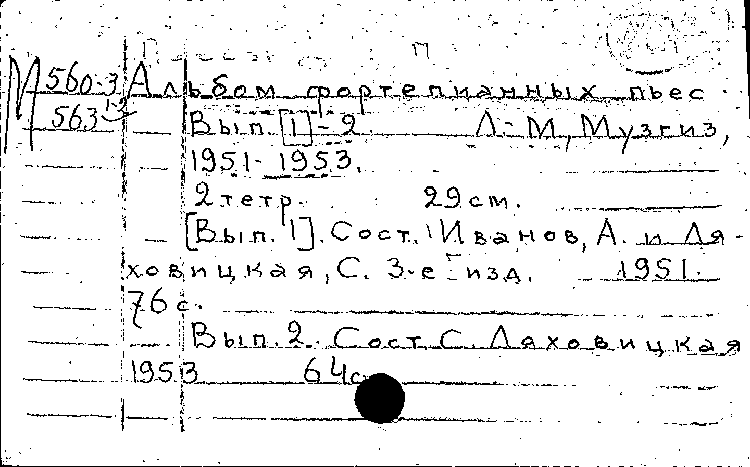 М 560-3 Альбом фортепианных пьес.
563 1-2 Вып. [1]-2 Л-М, Музгиз,
1951-1953.
2 тетр. 29 см.
[Вып. 1]. Сост. Иванов, А. и Ля-
ховицкая, С. 3-е изд. 1951.
76 с.
Вып. 2. Сост. С. Ляховицкая
1953 64 с